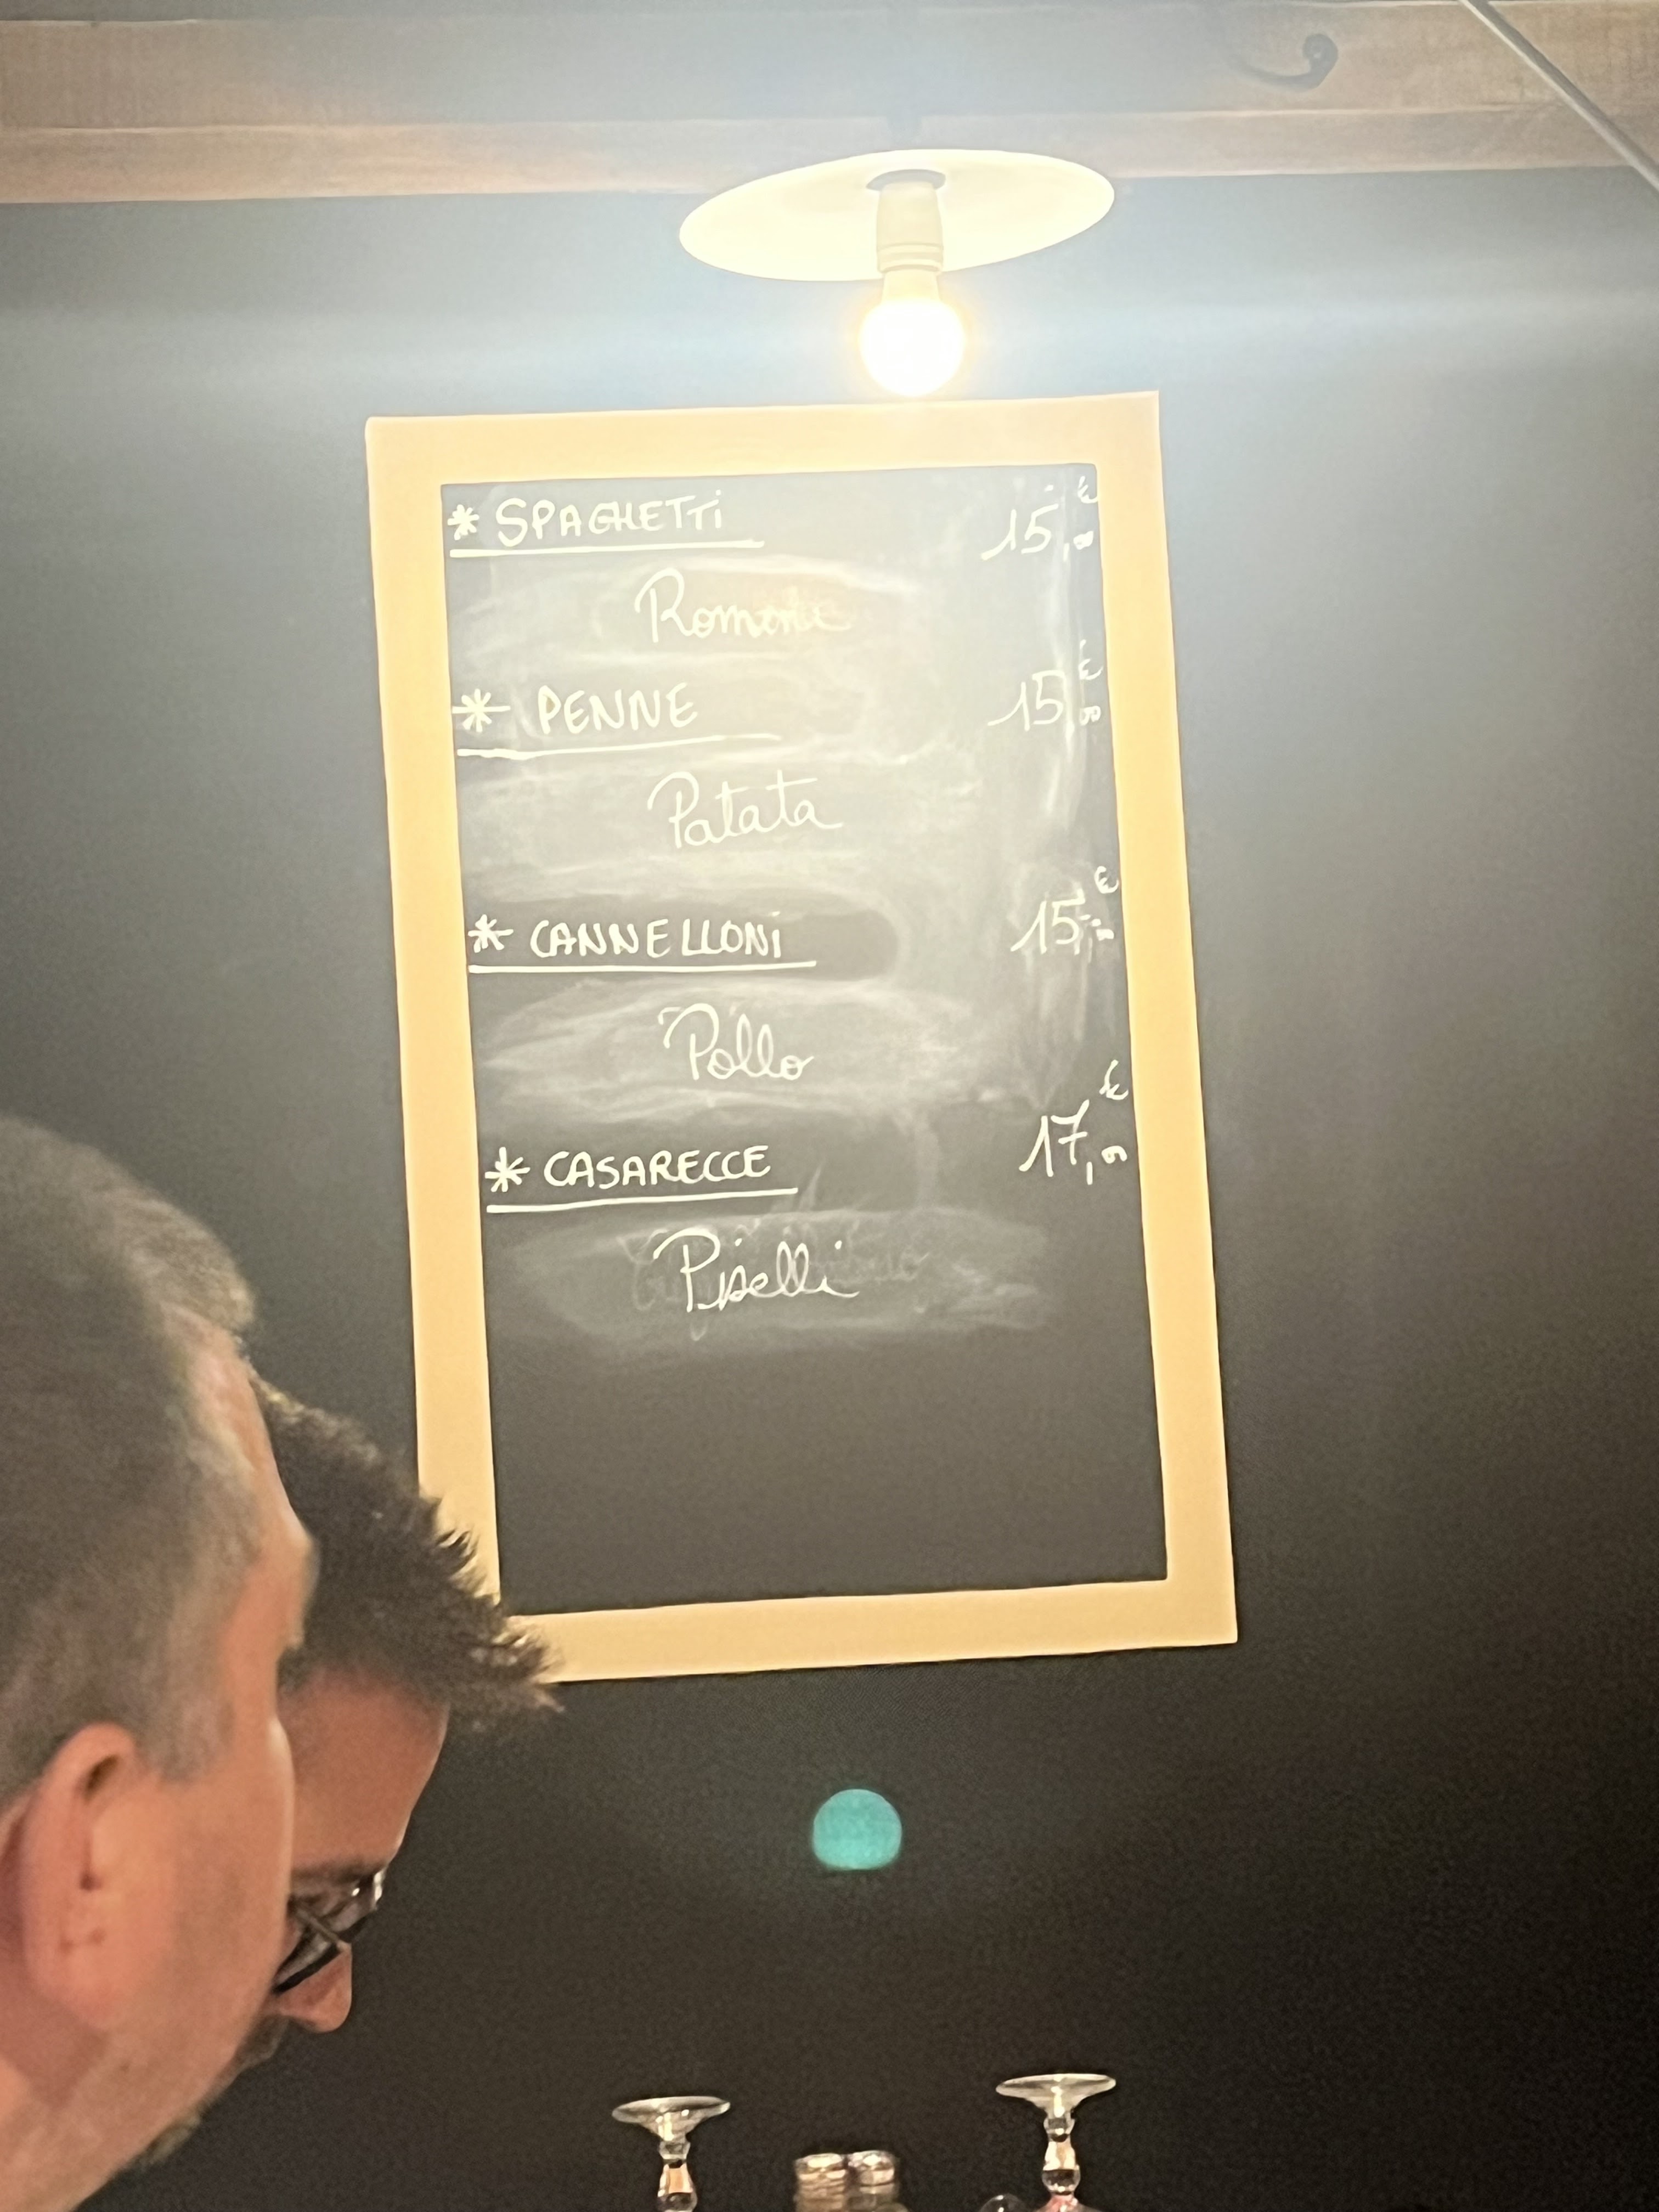 * SPAGHETTI 15,
Romana
* PENNE 15,
Patata
* CANNELLONI 15,
Pollo
* CASARECCE 17,
Piselli